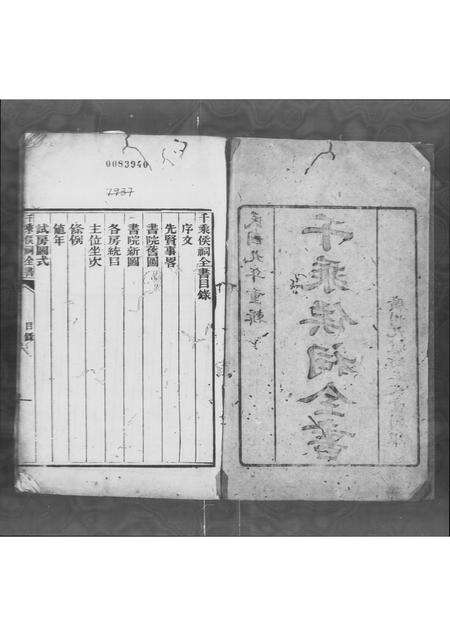 民國九年重輯
千乘侯祠全書
0083940
1937
千乘侯祠全書目錄
序文
先賢事畧
書院舊圖
書院新圖
各房統目
主位坐次
條例
值年
試房圖式
千乘侯祠全書 目錄